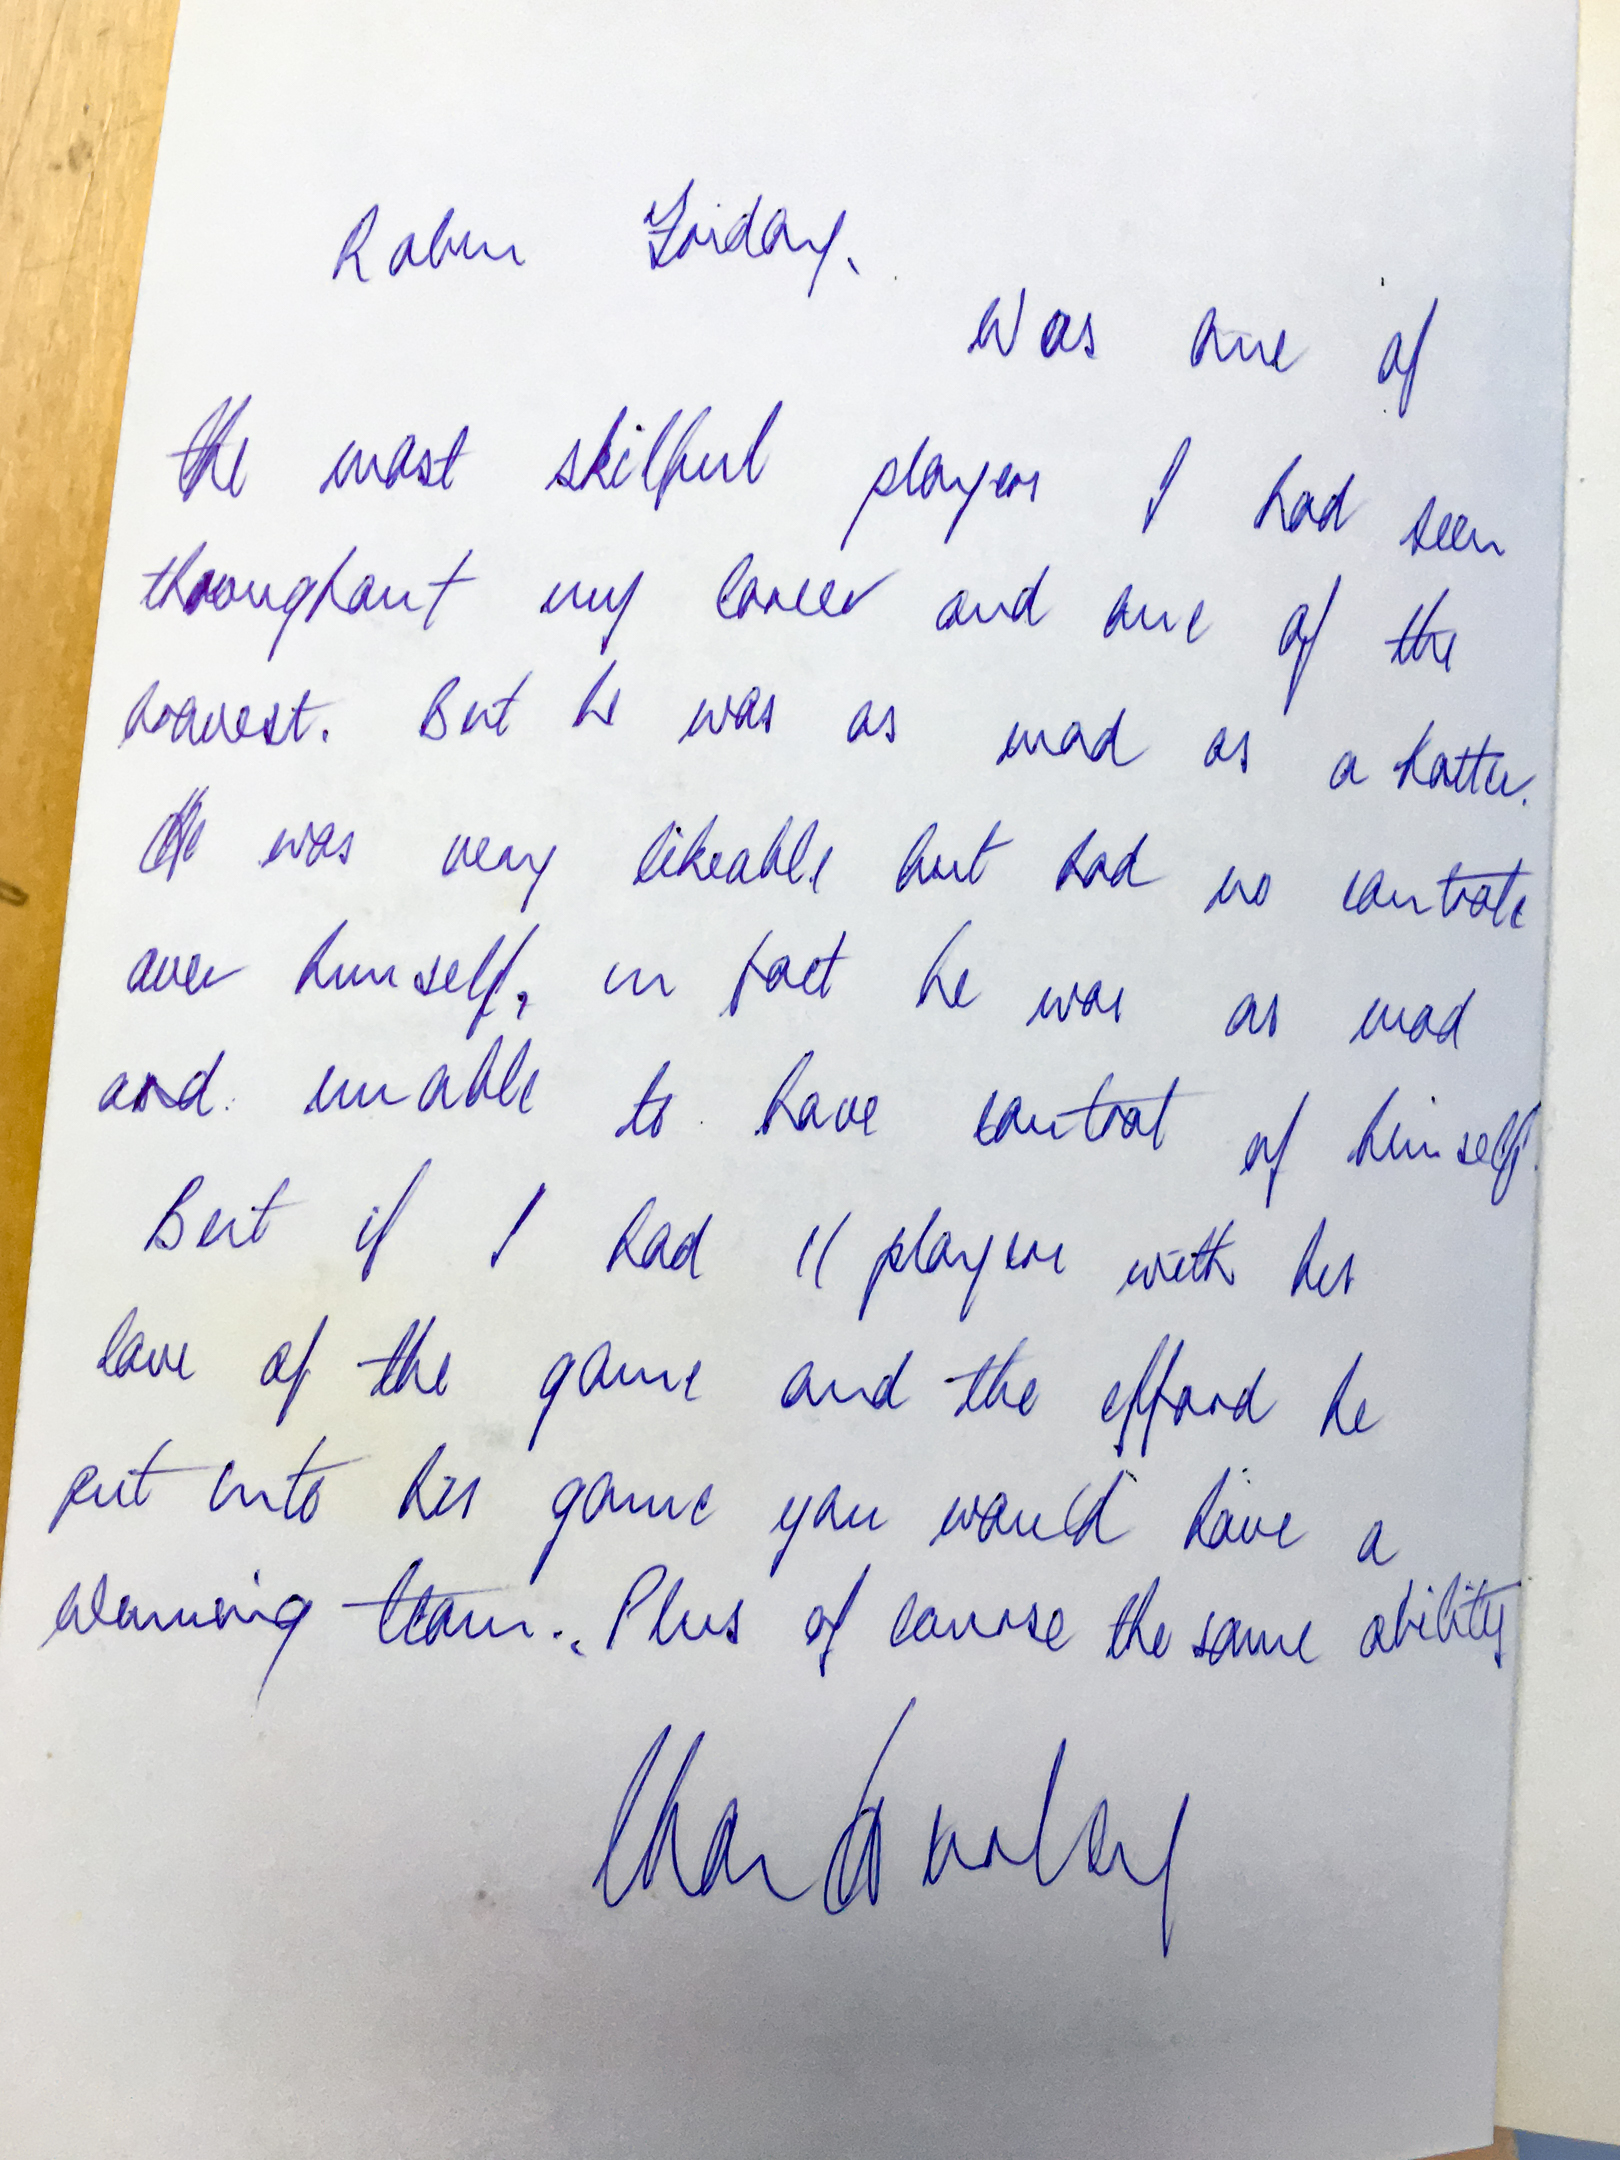 Robin Friday.
Was one of
the most skilful players I had seen
throughout my career and one of the
bravest. But he was as mad as a hatter.
He was very likeable but had no controle
over himself, in fact he was as mad
and unable to have control of himself.
But if I had 11 players with his
love of the game and the efford he
put into his game you would have a
winning team. Plus of course the same ability